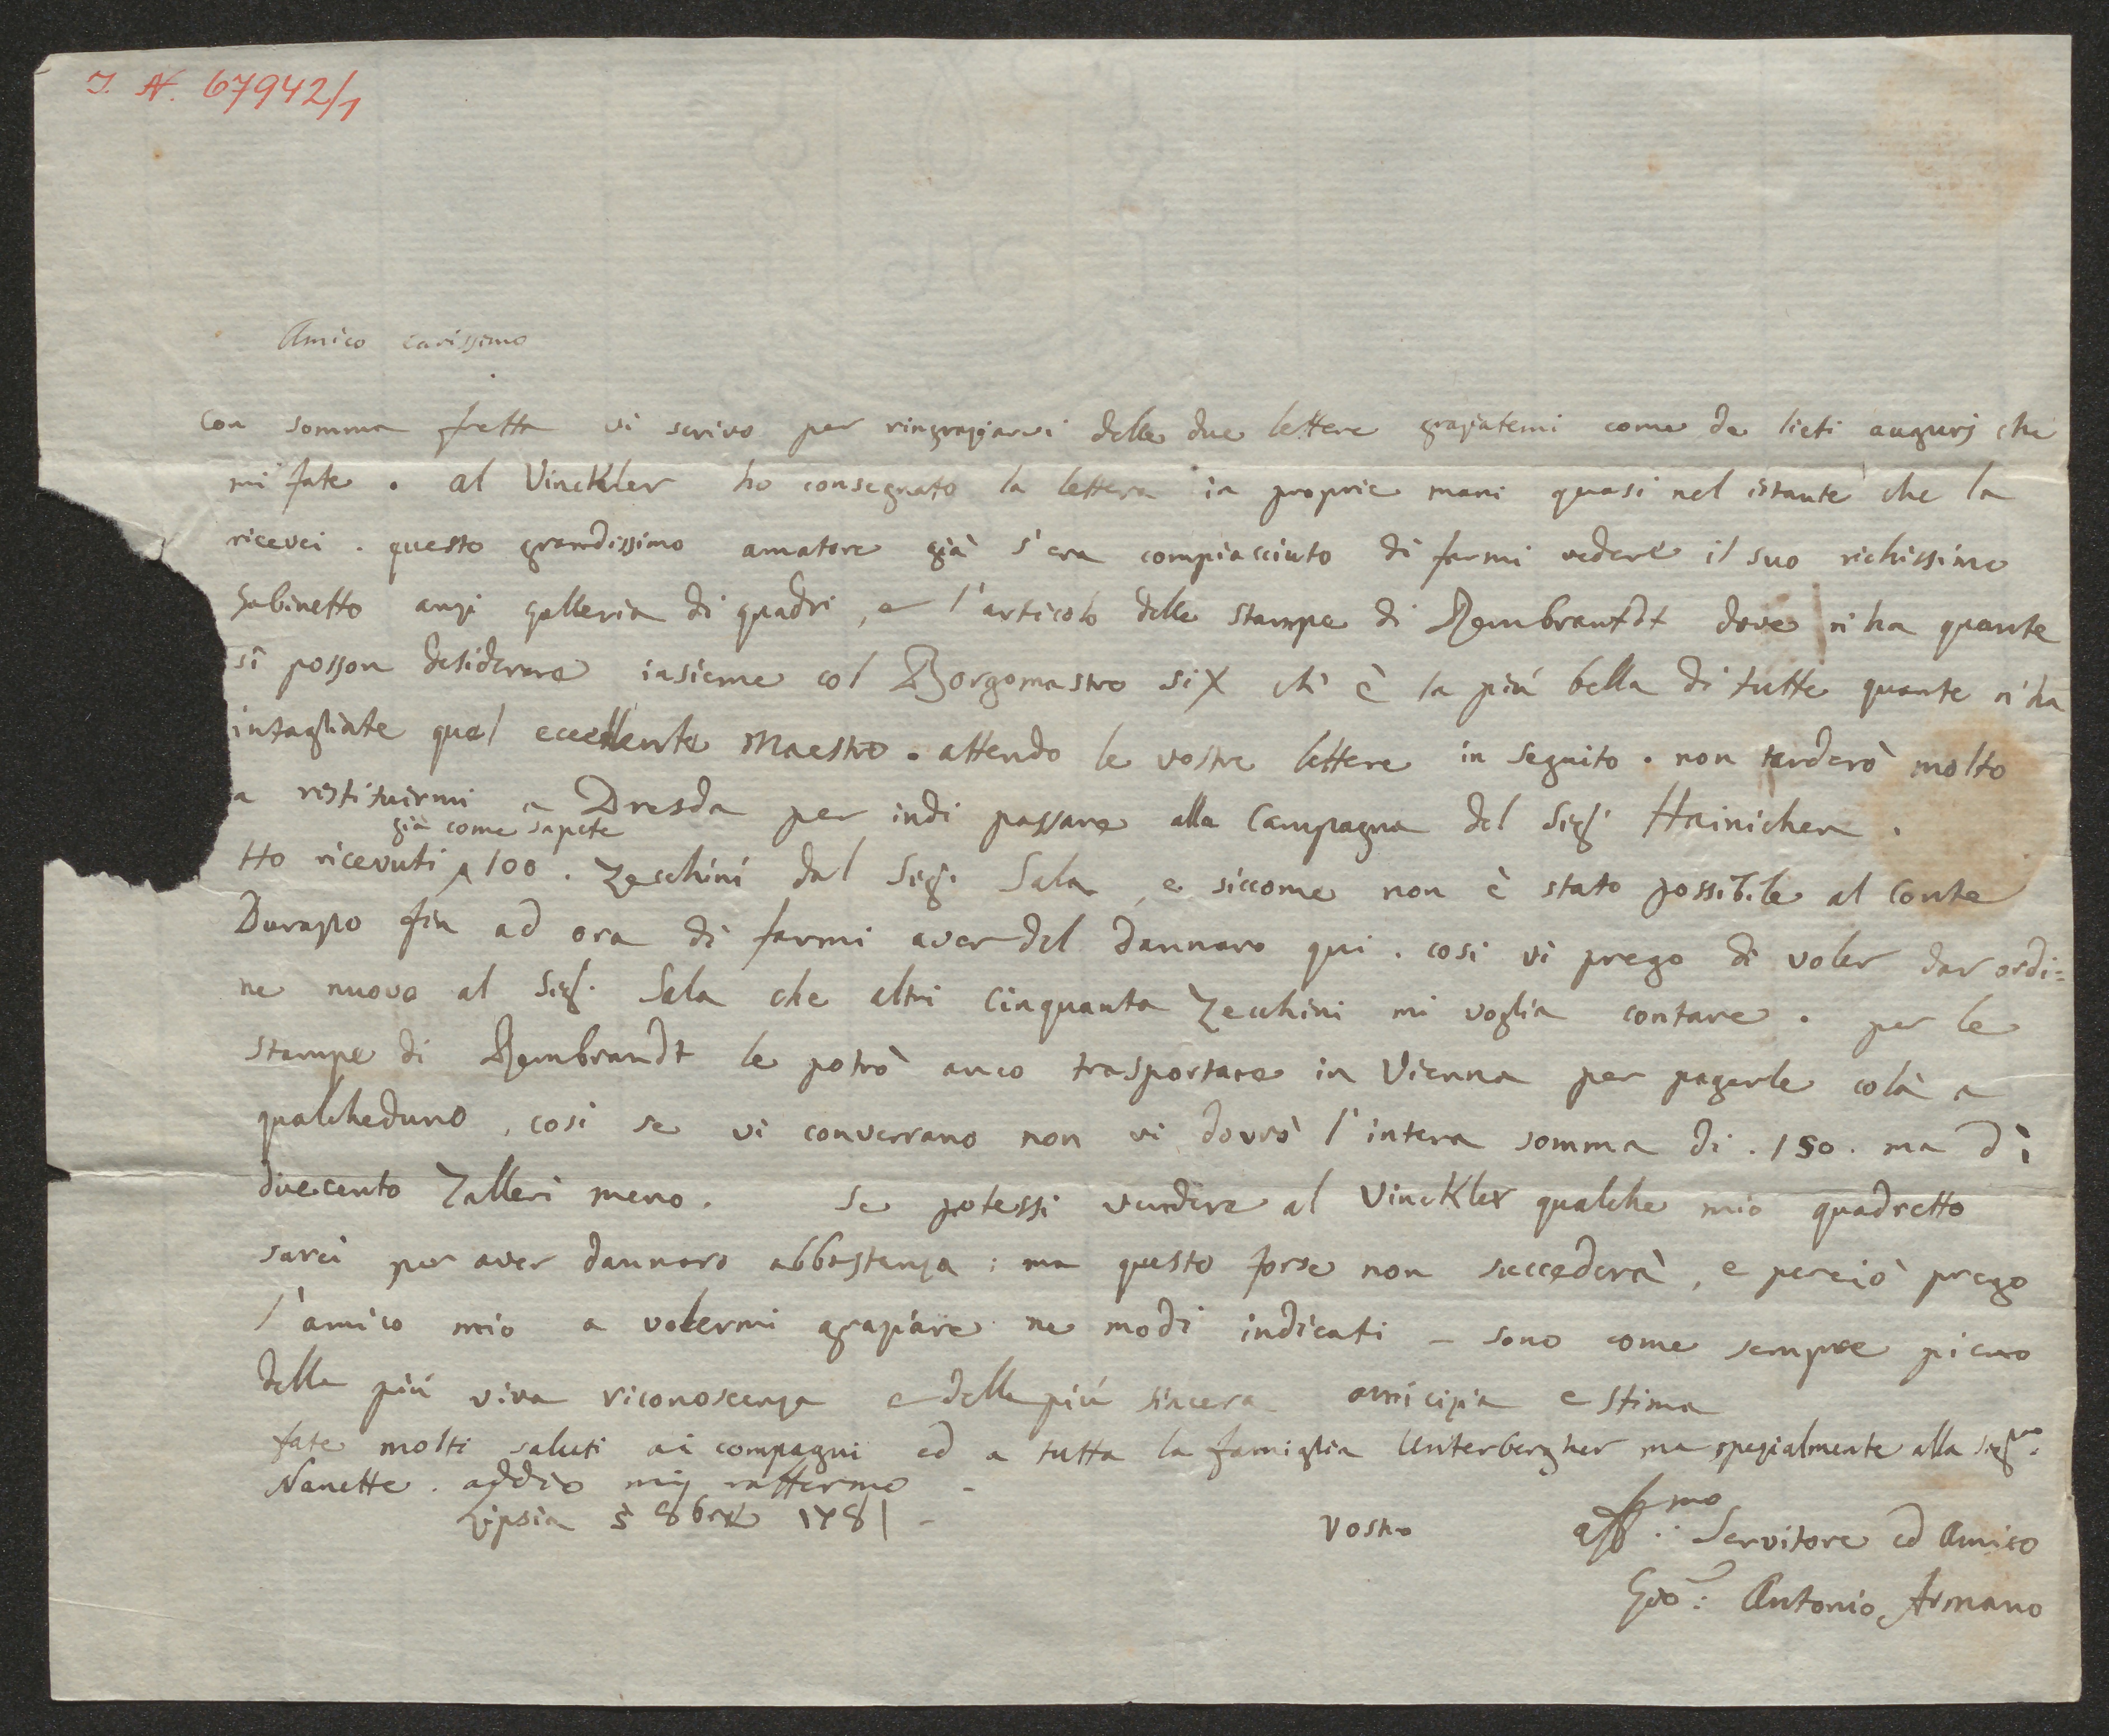 J. N. 67942/1
Amico carissimo
Con somma fretta vi scrivo per ringraziarvi delle due lettere graziatemi come de lieti augurj che
mi fate . al Vinckler ho consegnato la lettera in proprie mani quasi nel istante che la
ricevei . questo grandissimo amatore già s'era compiacciuto di farmi vedere il suo richissimo
Gabinetto anzi galleria di quadri , e l'articolo delle stampe di Rembrantdt dove n'ha quante
si posson desiderare insieme col Borgomastro six ch' è la più bella di tutte quante n'ha
intagliate quel eccellente Maestro . attendo le vostre lettere in seguito . non tarderò molto
a restituirmi a Dresda per indi passare alla Campagna del Sig.r Hainichen .
già come sapete
Ho ricevuti 100 . Zecchini dal Sig.r Sala , e siccome non è stato possibile al Conte
Durazzo fin ad ora di farmi aver del dannaro qui . cosi vi prego di voler dar ordi=
ne nuovo al Sig.r Sala che altri Cinquanta Zecchini mi voglia contare . per le
stampe di Rembrandt le potrò anco trasportare in Vienna per pagerle colà a
qualcheduno , cosi se vi converrano non vi dovrò l'intera somma di . 150 . ma di
duecento Talleri meno . Se potessi vendere al Vinckler qualche mio quadretto
sarei per aver dannaro abbastanza ; ma questo forse non succederà , e perciò prego
l'amico mio a volermi agraziare ne modi indicati - sono come sempre pieno
della più viva riconoscenza e della più sincera amicizia e stima
fate molti saluti ai compagni ed a tutta la famiglia Unterbergher ma spezialmente alla Sig.ra
Nanette . addio mi raffermo -
Lipsia 5 8bre 1781 -
Vostro aff.mo Servitore ed Amico
Gio: Antonio Armano